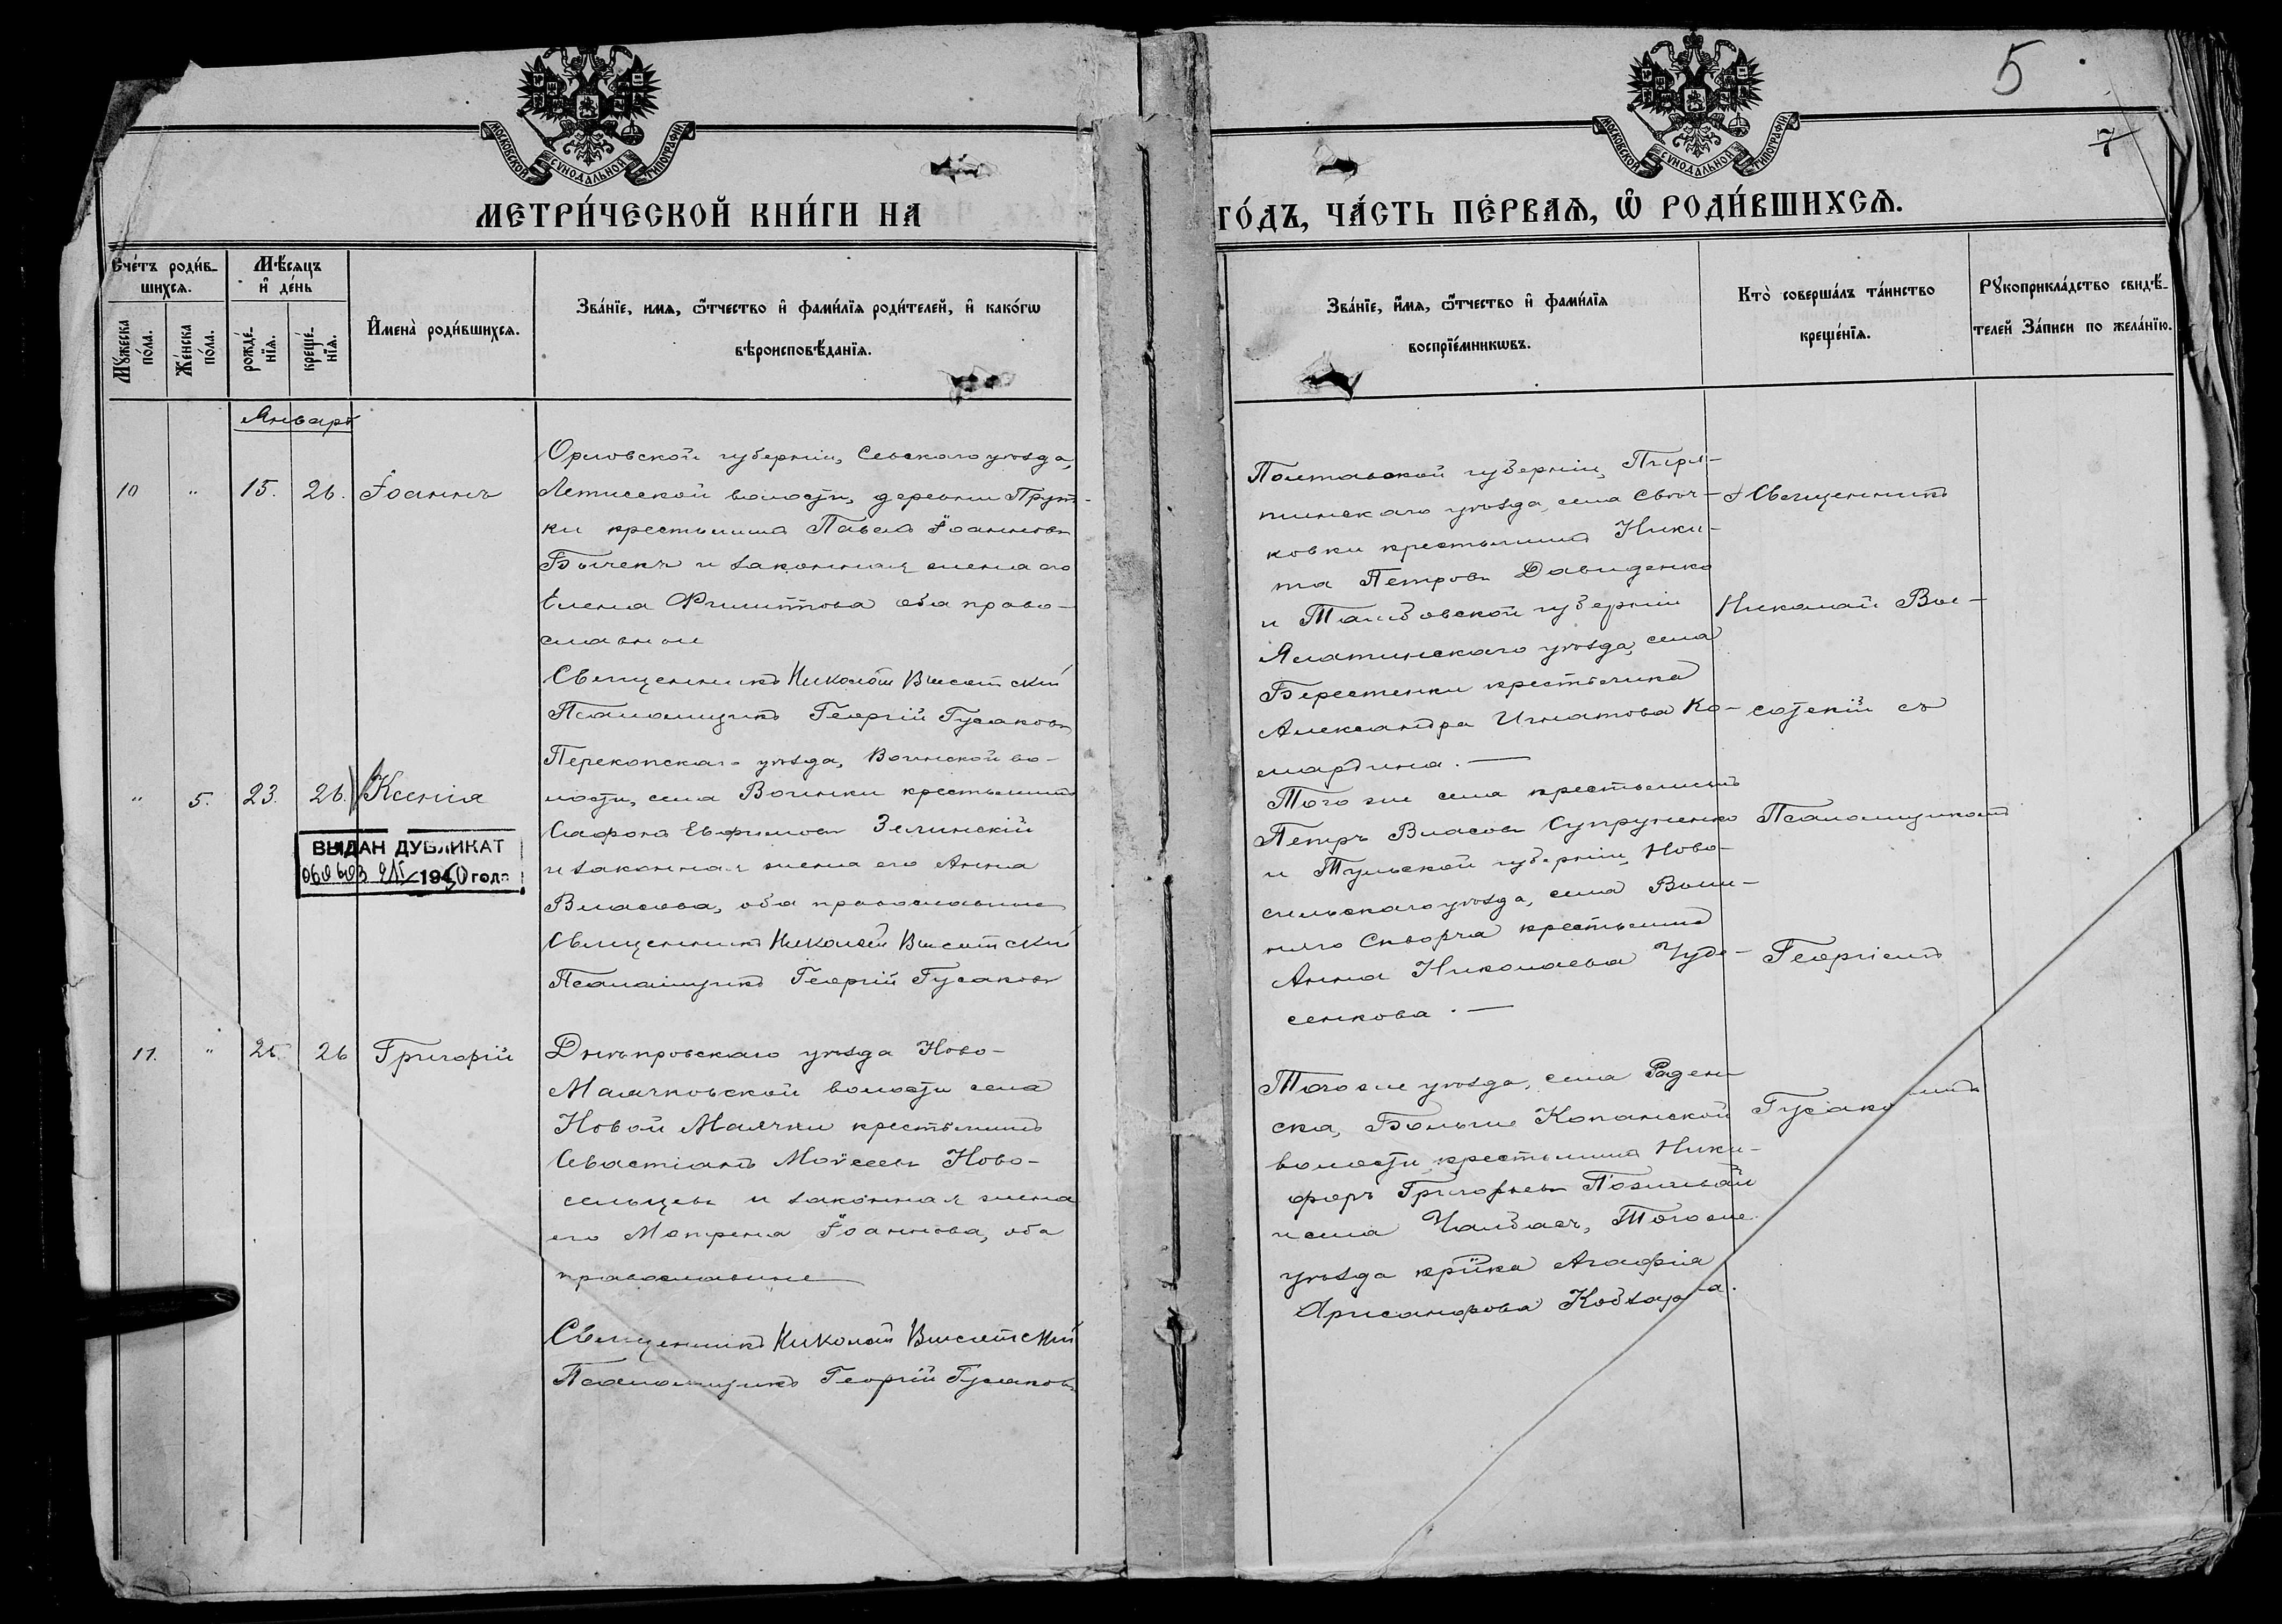 5
7
МОСКОВСКОЙ СѴНОДАЛЬНОЙ ТИПОГРАФІИ
МОСКОВСКОЙ СѴНОДАЛЬНОЙ ТИПОГРАФІИ
МЕТРИ́ЧЕСКОЙ КНИ́ГИ НА
ГО́ДЪ, ЧА́СТЬ ПЕ́РВАѦ, Ѽ РОДИ́ВШИХСѦ.
Счéтъ роди́в-
шихсѧ.
Мꙋжеска
по́ла.
Же́нска
по́ла.
Мѣ́сѧцъ
и҆ де́нь
рожде́-
нїѧ.
креще́-
нїѧ.
И҆мена̀ роди́вшихсѧ.
Зва́нїе, имѧ, ѻ҆́тчество и҆ фами́лїѧ роди́телей, и҆ како́гѡ
вѣроисповѣ́данїѧ.
Зва́нїе, и҆́мѧ, ѻ҆́тчество и҆ фами́лїѧ
воспрїе́мникѡвъ.
Кто̀ соверша́лъ та́инство
креще́нїѧ.
Рꙋкоприкла́дство свидѣ́-
телей За́писи по жела́нїю.
Январь
10 " 15. 26. Іоаннъ
Орловской губерніи, Севскаго уѣзда,
волости, деревни Прут-
ки крестьянинъ Павелъ Іоанновъ
Бычекъ и законная жена его
Елена Филиппова оба право-
славные
Священникъ Николай Высотскій
Псаломщикъ Георгій Гусаковъ
Полтавской губерніи, Пиря-
тинскаго уѣзда, села Свѣч-
ковки крестьянинъ Ники-
та Петровъ Давиденко
и Тамбовской губерніи
Елатинскаго уѣзда, села
Берестенки крестьянка
Александра Игнатова Ко-
мардина. —
" 5. 23. 26. Ксенія
ВЫДАН ДУБЛИКАТ
1950 года
Перекопскаго уѣзда, Воинской во-
лости, села Воинки крестьянинъ
Сафонъ Евфимовъ Зелинскій
и законная жена его Анна
Власова, оба православные
Священникъ Николай Высотскій
Псаломщикъ Георгій Гусаковъ
Того же села крестьянинъ
Петръ Власовъ Супруненко
и Тульской губерніи, Ново-
сильскаго уѣзда, села Выш-
няго Скворча крестьянка
Анна Николаева Чудо-
сенкова. —
11. " 25. 26 Григорій
Днѣпровскаго уѣзда Ново-
Маячковской волости села
Новой Маячки крестьянинъ
Севастіанъ Моѵсеевъ Ново-
сельцевъ и законная жена
его Матрена Іоаннова, оба
православные
Священникъ Николай Высотскій
Псаломщикъ Георгій Гусаковъ
Того же уѣзда, села Раден-
ска, Больше Копанской
волости, крестьянинъ Ники-
форъ Григорьевъ
и села Чалбасъ, Того же
уѣзда кр̃нка Агафія
Ѳ Священникъ
Николай Вы-
сотскій съ
Псаломщикомъ
Георгіемъ
Гусаковымъ